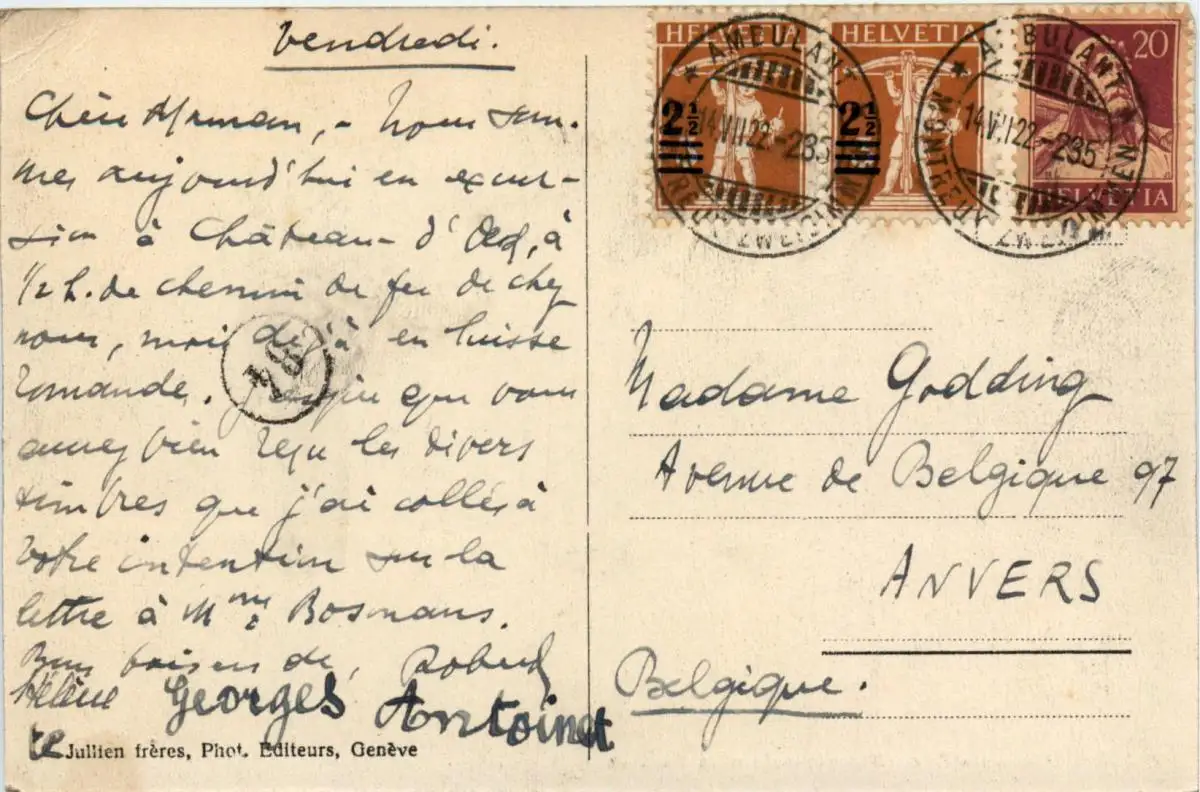 Vendredi.
Chère Maman, - Nous som-
mes aujourd'hui en excur-
sion à Château-d'Oex, à
1/2 h. de chemin de fer de chez
nous, mais déjà en Suisse
romande. J'espère que vous
aurez bien reçu les divers
timbres que j'ai collés à
votre intention sur la
lettre à Mme Bosmans.
Bons baisers de, Robert
Hélène Georges Antoinet
te
Jullien frères, Phot. Editeurs, Genève
HELVETIA HELVETIA 20
2½ 2½
HELVETIA
AMBULANT
14.VII.22 - 285
MONTREUX-ZWEISIMMEN
AMBULANT
14.VII.22 - 285
MONTREUX-ZWEISIMMEN
Madame Godding
Avenue de Belgique 97
ANVERS
Belgique.